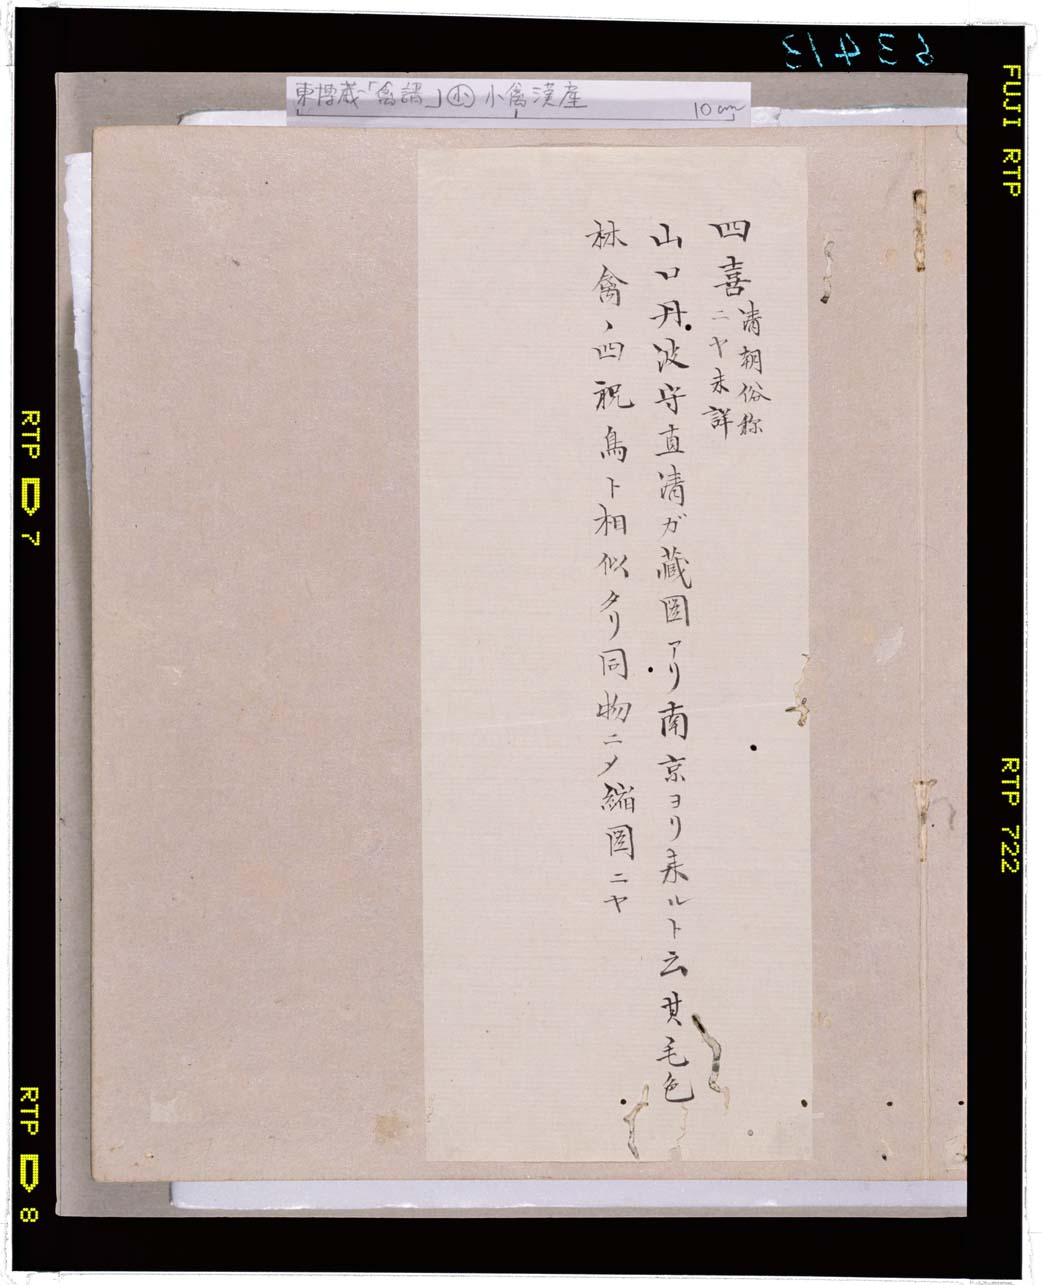 63413
東博蔵「禽譜」㊙小禽漢産
10cm
四喜 清朝俗称
ニヤ未詳
山口丹波守直清ガ蔵圖アリ南京ヨリ来ルト云其毛色
林禽ヽ四祝鳥ト相似タリ同物ニメ縮圖ニヤ
FUJI RTP
RTP 722
RTP 7
RTP 8